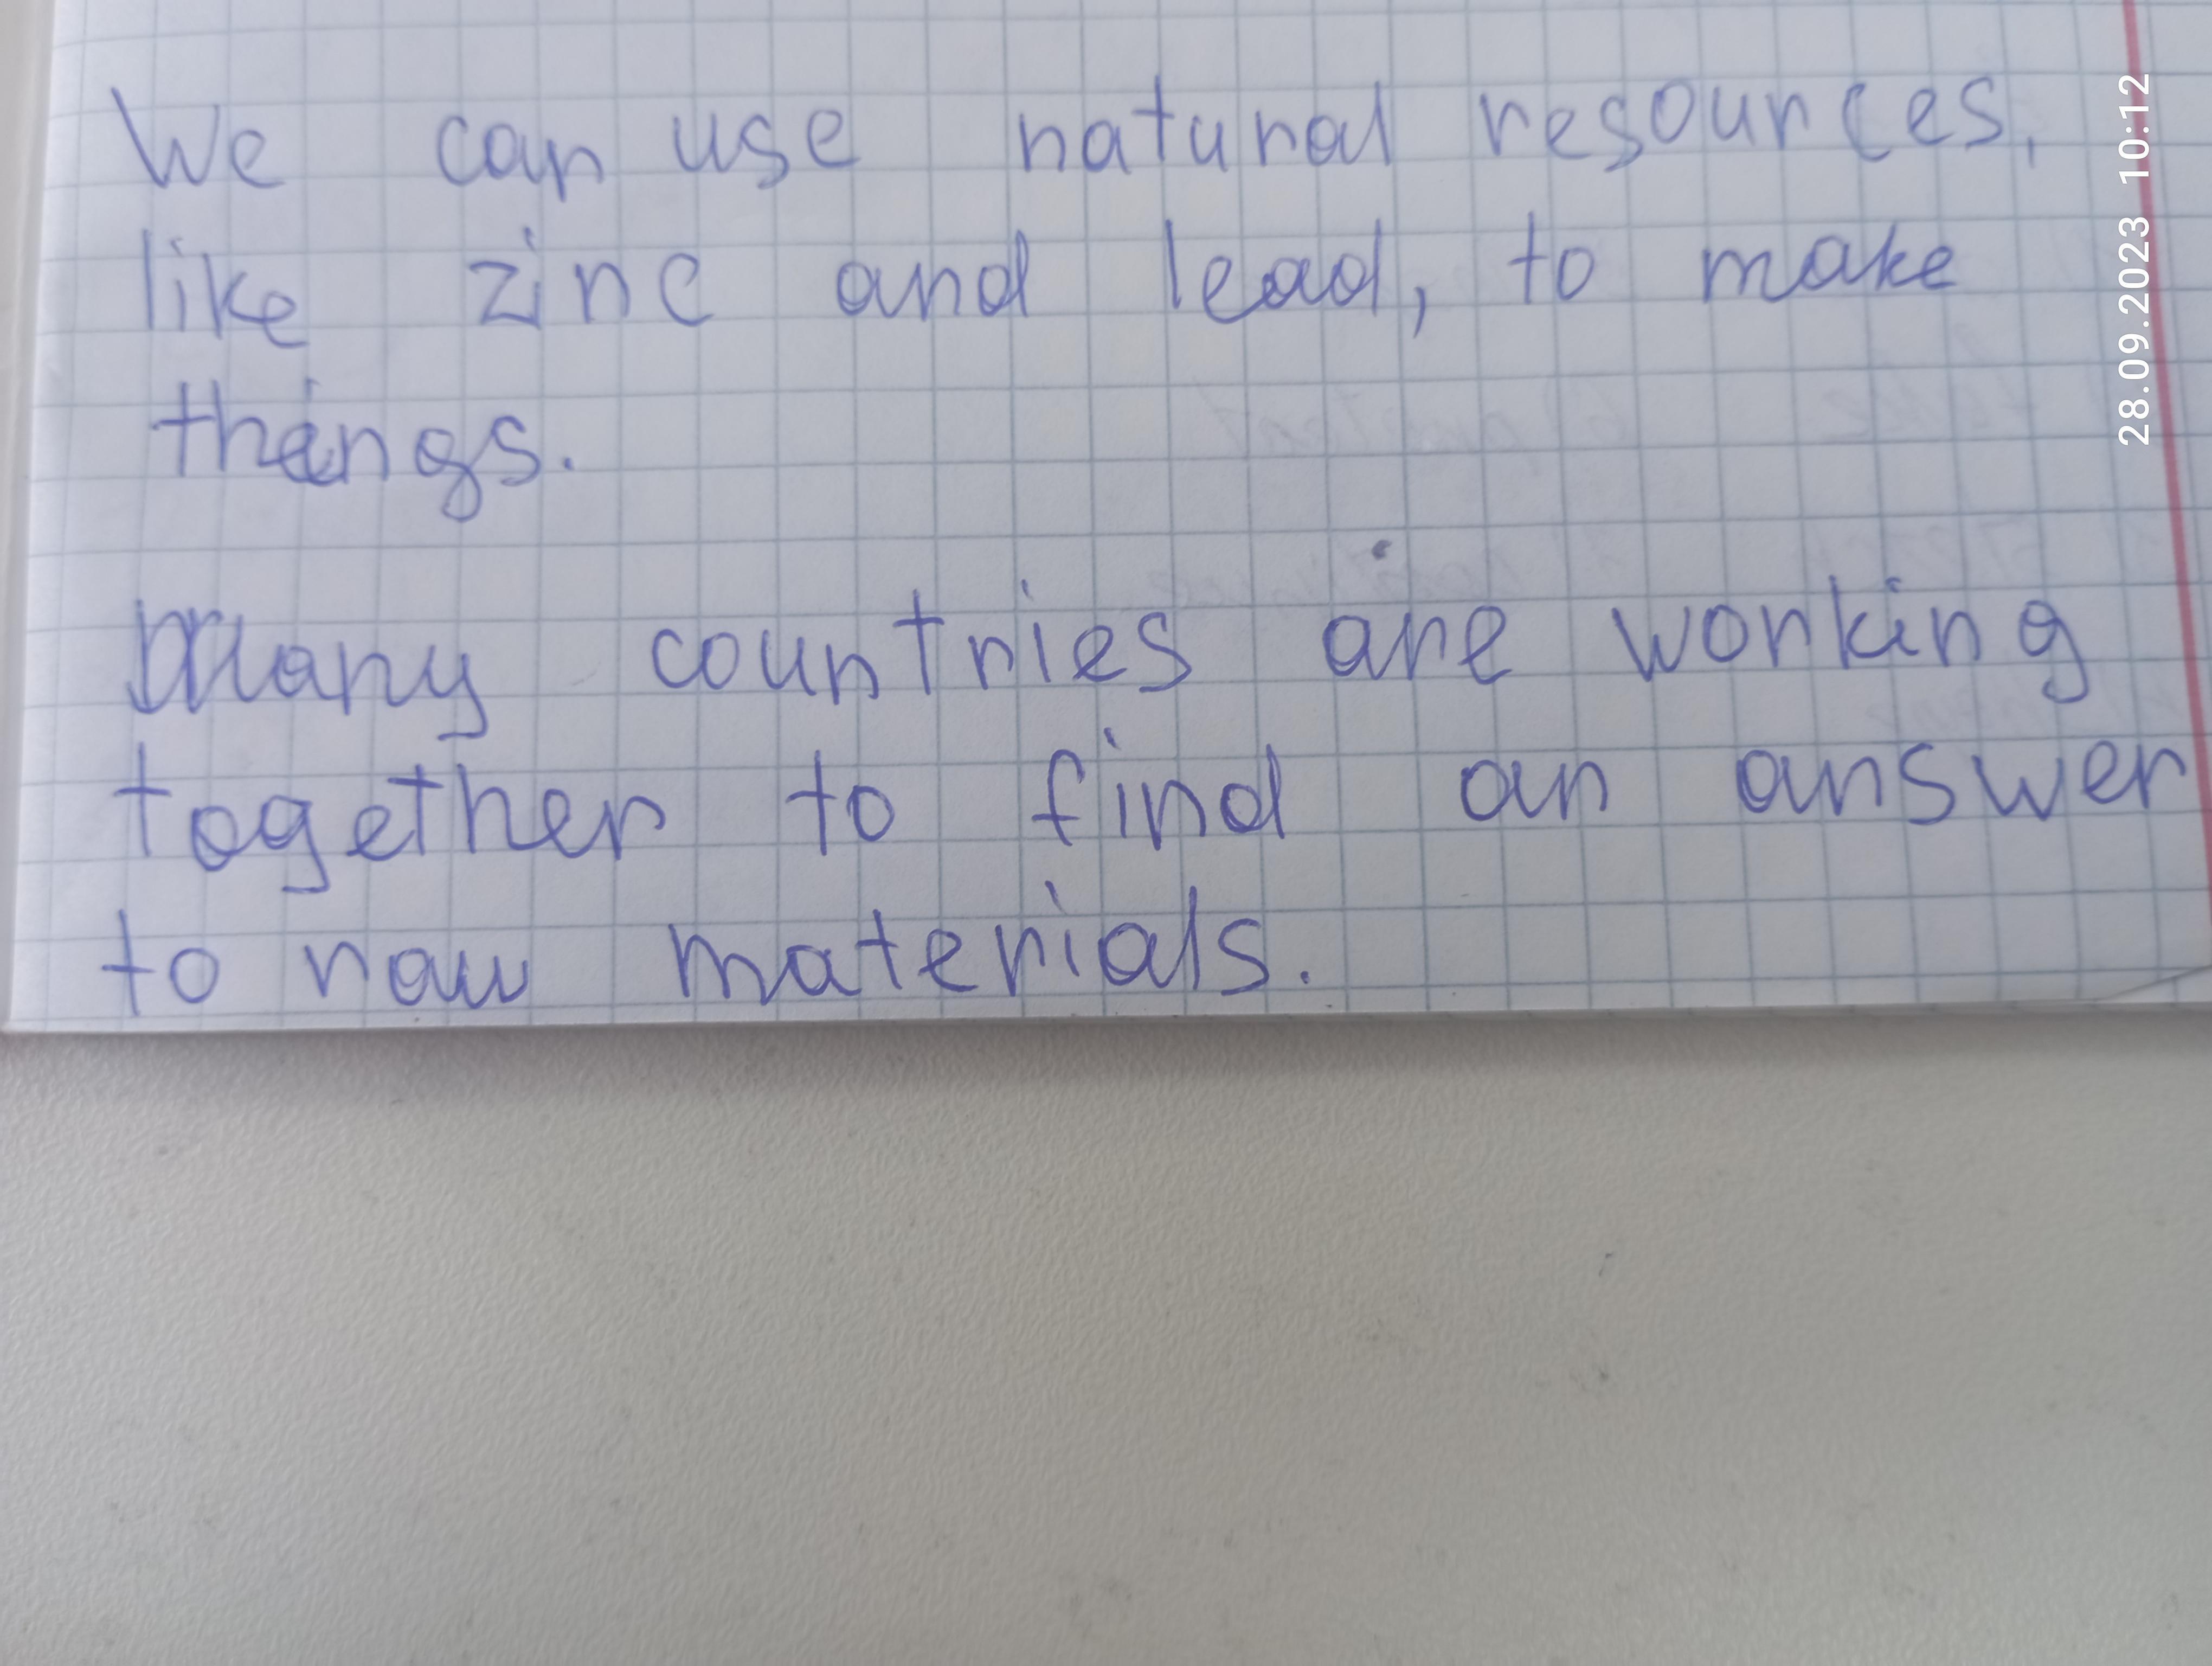 We can use natural resources,
like zinc and lead, to make
things.
Many countries are working
together to find an answer
to raw materials.
28.09.2023 10:12